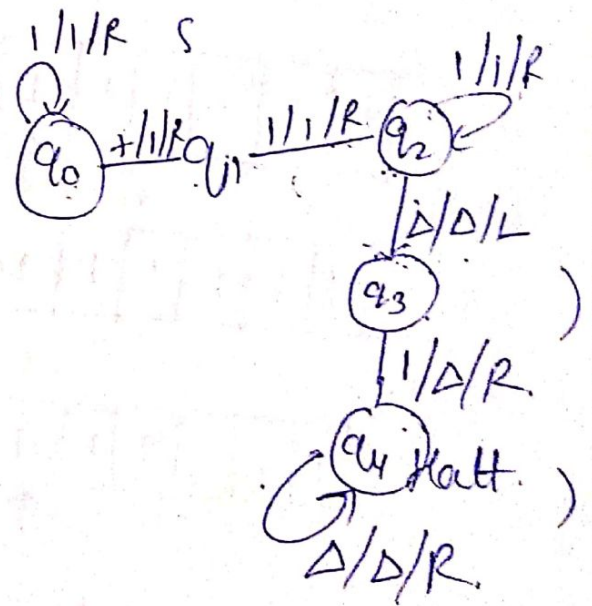 1/1/R S
1/1/R
q0 +/1/R q1 1/1/R q2
Δ/Δ/L
q3 )
1/Δ/R
q4 Halt. )
Δ/Δ/R